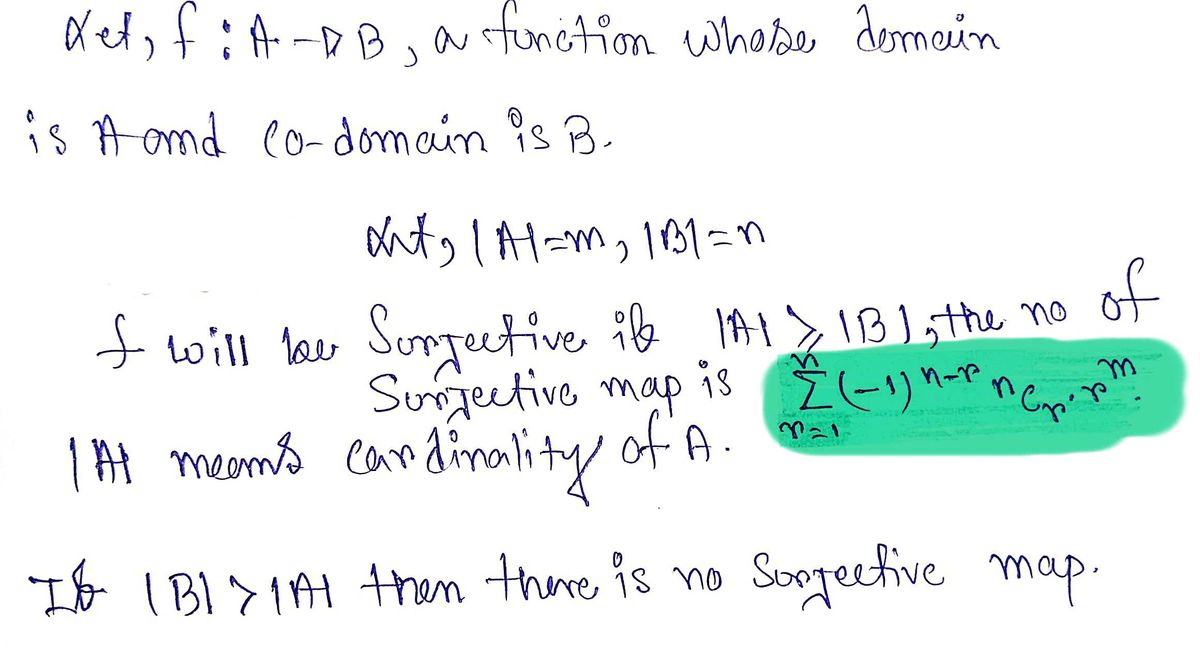 Let, f : A → B, a function whose domain
is A and co-domain is B.
Let, |A|=m, |B|=n
f will be Surjective if |A| ≥ |B|, the no of
Surjective map is $\sum_{r=1}^{n} (-1)^{n-r} \, {}^{n}C_{r} \cdot r^{m}$.
|A| means cardinality of A.
If |B| > |A| then there is no Surjective map.